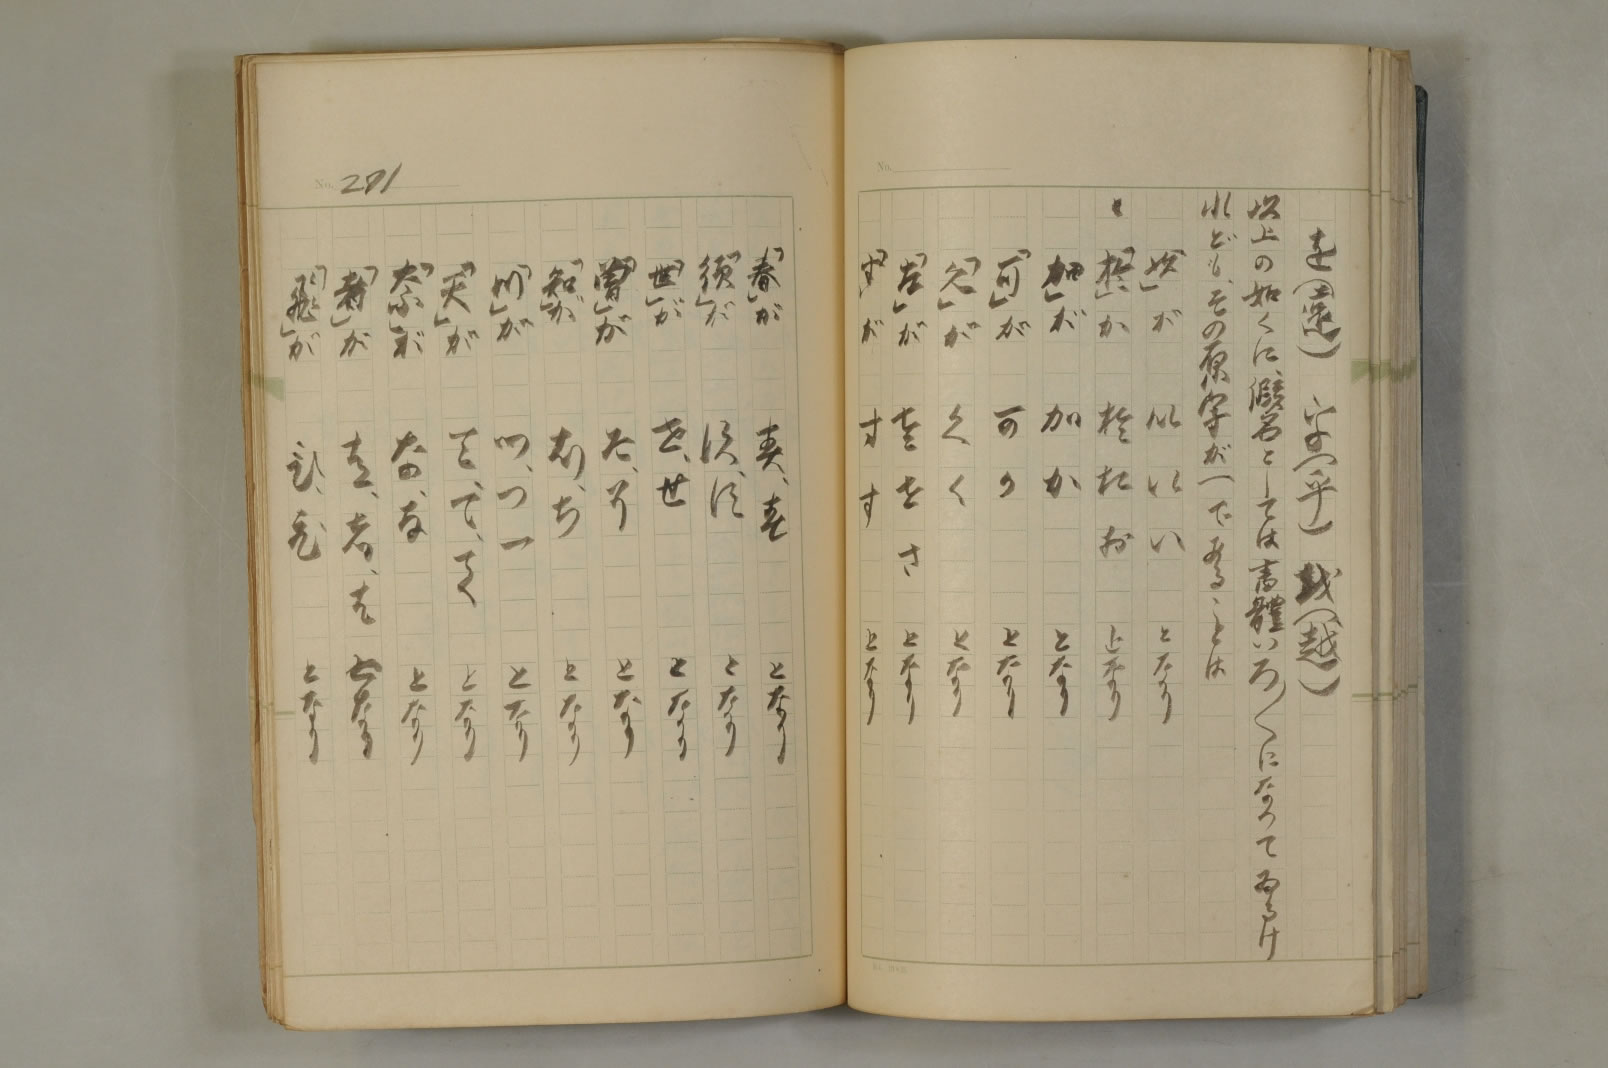 遠(遠) 乎(乎) 越(越)
以上の如くに、假名としては書體いろ〳〵になつてゐるけ
れども、その原字が一でゐることは
「以」が 以 い となり
「於」が 於 お となり
「加」が 加 か となり
「可」が 可 か となり
「久」が 久 く となり
「左」が 左 さ となり
「寸」が 寸 す となり
No.
No. 291
「春」が 春、春 となり
「須」が 須、須 となり
「世」が せ、世 となり
「曽」が そ、そ となり
「知」が 知、ち となり
「川」が 川、つ となり
「天」が て、て、て となり
「奈」が な、な となり
「者」が は、者、は となる
「飛」が ひ、飛 となり